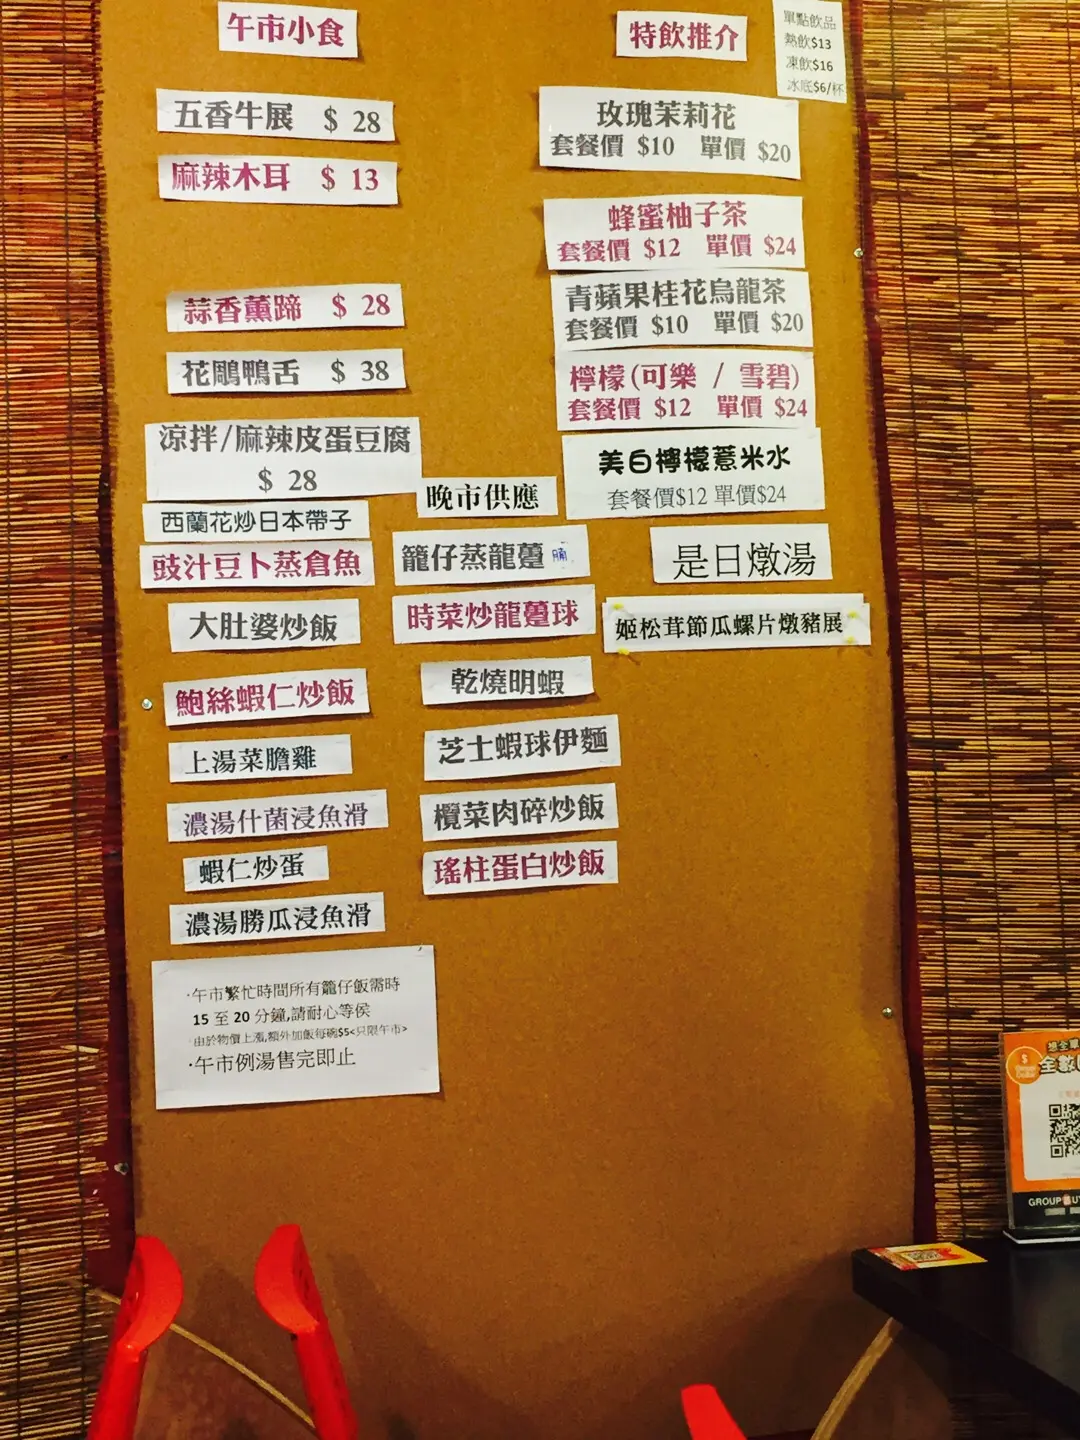 午市小食
五香牛展 $ 28
麻辣木耳 $ 13
蒜香薰蹄 $ 28
花雕鴨舌 $ 38
涼拌/麻辣皮蛋豆腐
$ 28
西蘭花炒日本帶子
豉汁豆卜蒸倉魚
大肚婆炒飯
鮑絲蝦仁炒飯
上湯菜膽雞
濃湯什菌浸魚滑
蝦仁炒蛋
濃湯勝瓜浸魚滑
·午市繁忙時間所有籠仔飯需時
15 至 20 分鐘,請耐心等侯
由於物價上漲,額外加飯每碗$5<只限午市>
·午市例湯售完即止
晚市供應
籠仔蒸龍躉腩
時菜炒龍躉球
乾燒明蝦
芝士蝦球伊麵
欖菜肉碎炒飯
瑤柱蛋白炒飯
特飲推介
玫瑰茉莉花
套餐價 $10 單價 $20
蜂蜜柚子茶
套餐價 $12 單價 $24
青蘋果桂花烏龍茶
套餐價 $10 單價 $20
檸檬(可樂 / 雪碧)
套餐價 $12 單價 $24
美白檸檬薏米水
套餐價$12 單價$24
是日燉湯
姬松茸節瓜螺片燉豬展
單點飲品
熱飲$13
凍飲$16
冰底$6/杯
全數
GROUP